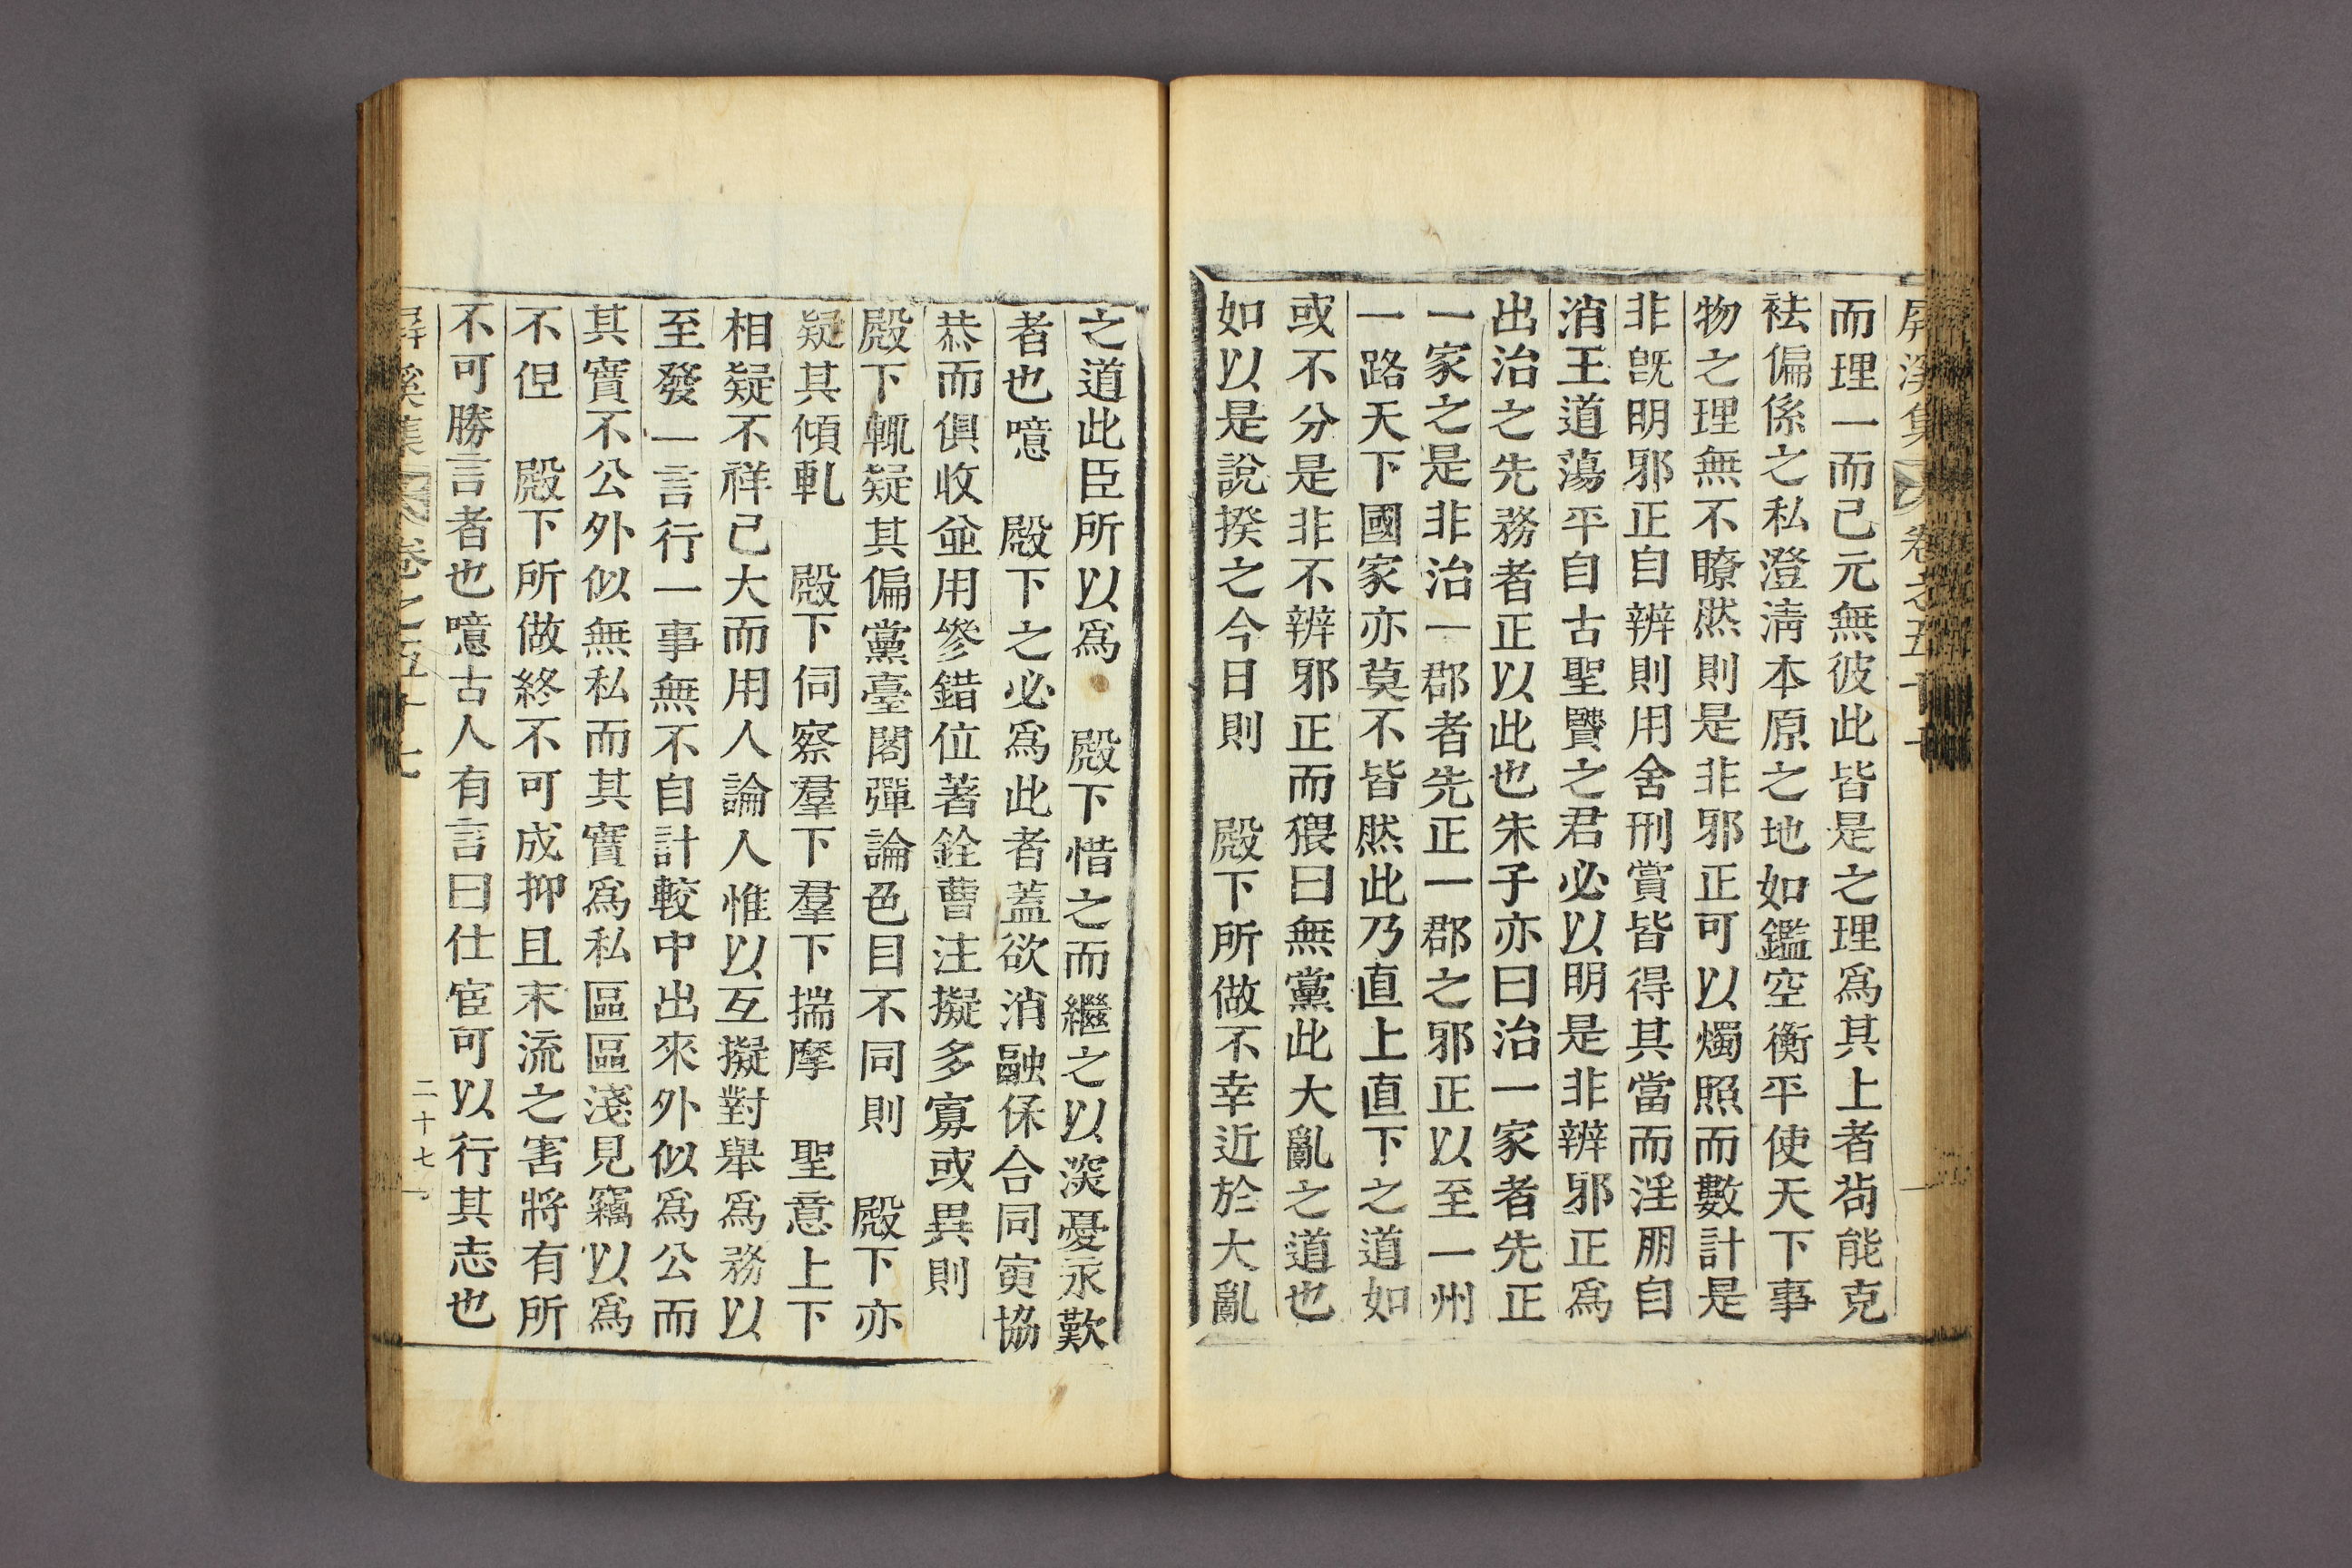 屛溪集 卷之五十七
而理一而已元無彼此皆是之理爲其上者苟能克
袪偏係之私澄淸本原之地如鑑空衡平使天下事
物之理無不瞭然則是非邪正可以燭照而數計是
非旣明邪正自辨則用舍刑賞皆得其當而淫朋自
消王道蕩平自古聖賢之君必以明是非辨邪正爲
出治之先務者正以此也朱子亦曰治一家者先正
一家之是非治一郡者先正一郡之邪正以至一州
一路天下國家亦莫不皆然此乃直上直下之道如
或不分是非不辨邪正而猥曰無黨此大亂之道也
如以是說揆之今日則 殿下所做不幸近於大亂
之道此臣所以爲 殿下惜之而繼之以深憂永歎
者也噫 殿下之必爲此者蓋欲消融保合同寅協
恭而俱收並用參錯位著銓曹注擬多寡或異則
殿下輒疑其偏黨臺閣彈論色目不同則 殿下亦
疑其傾軋 殿下伺察羣下羣下揣摩 聖意上下
相疑不祥已大而用人論人惟以互擬對舉爲務以
至發一言行一事無不自計較中出來外似爲公而
其實不公外似無私而其實爲私區區淺見竊以爲
不但 殿下所做終不可成抑且末流之害將有所
不可勝言者也噫古人有言曰仕宦可以行其志也
屛溪集 卷之五十七 二十七